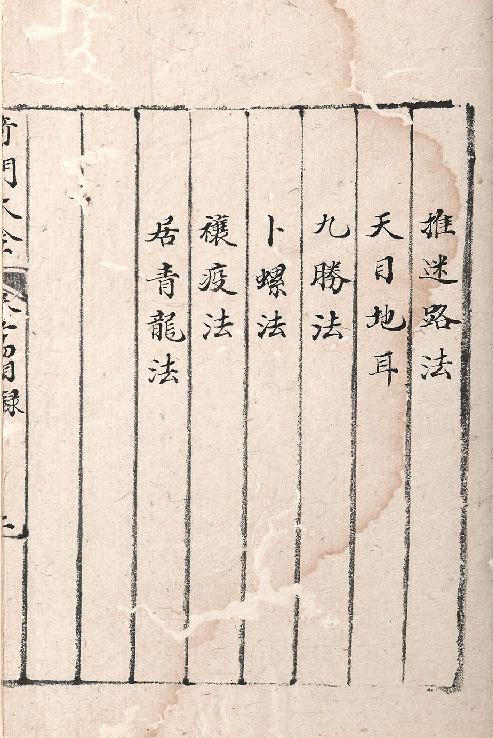 推迷路法
天目地耳
九勝法
卜螺法
禳疫法
居青龍法
目錄